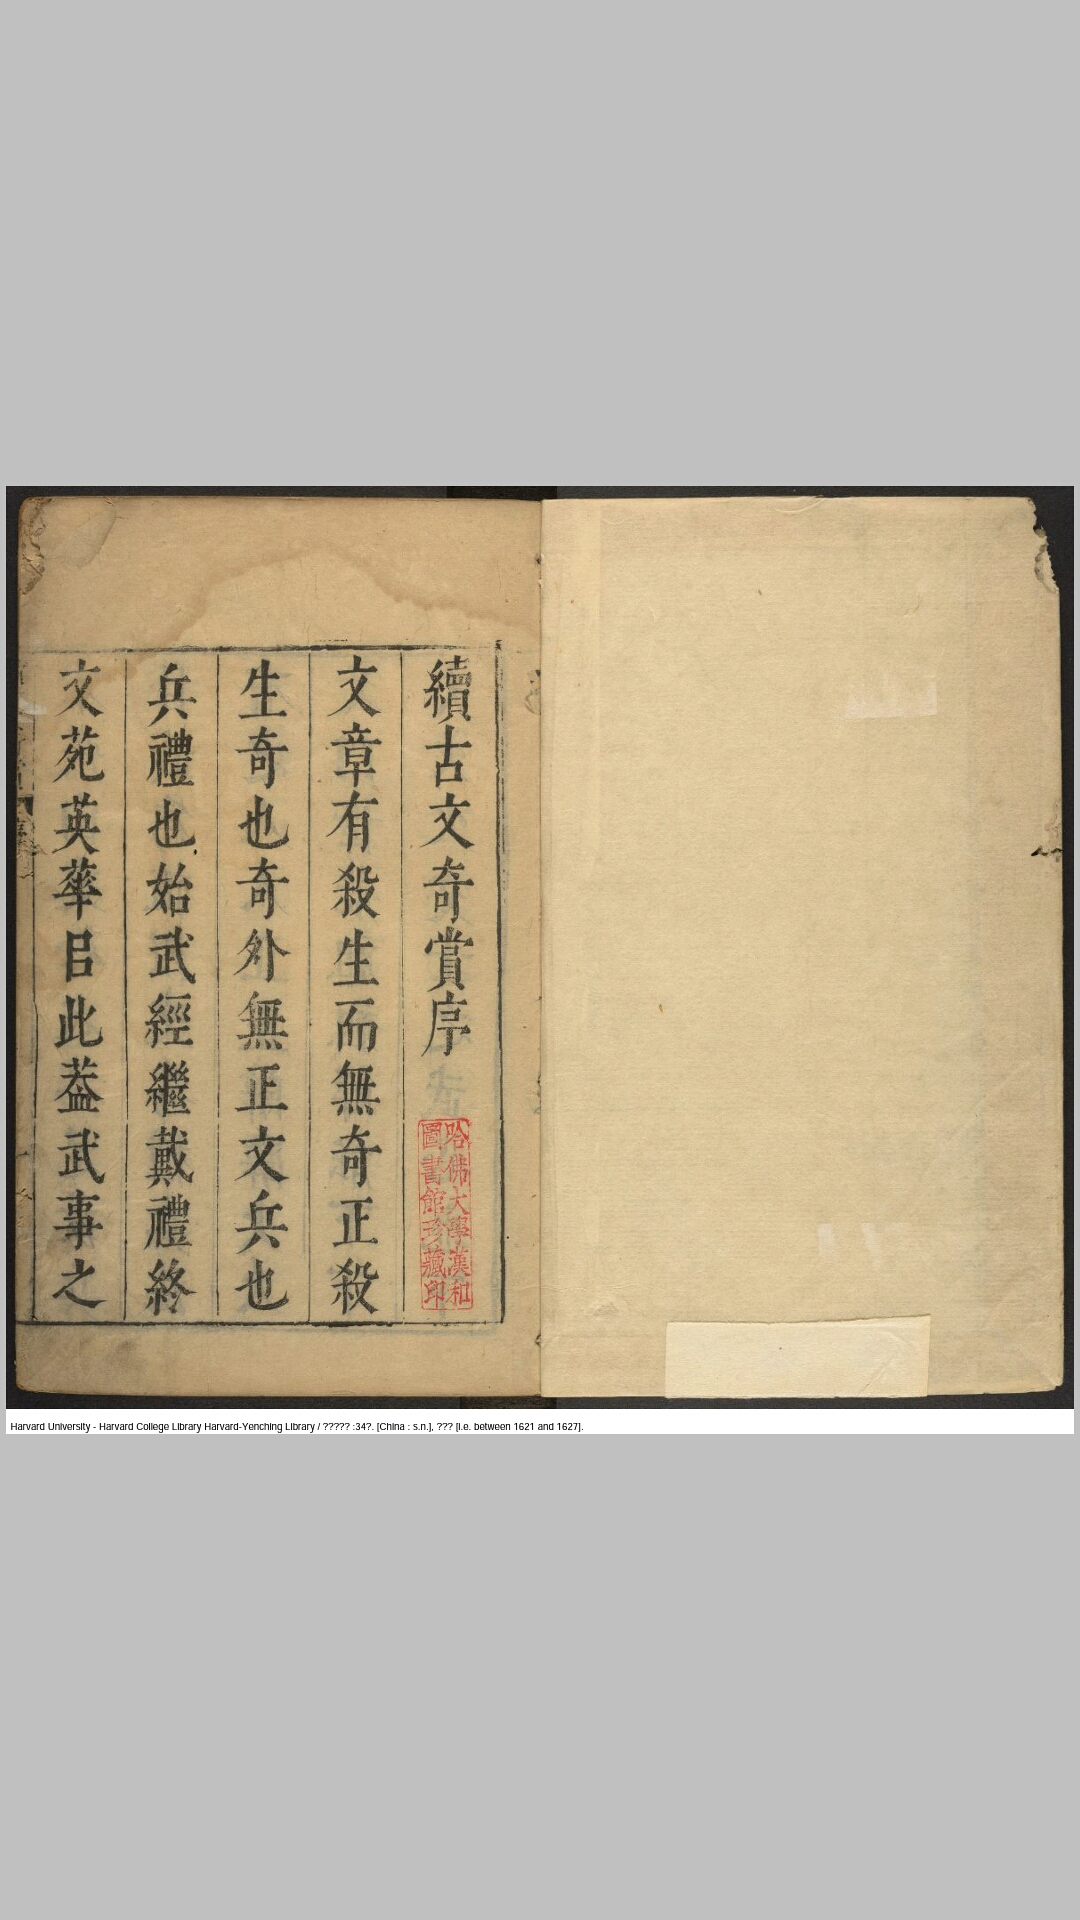 續古文奇賞序
哈佛大學漢和
圖書館珍藏印
文章有殺生而無奇正殺
生奇也奇外無正文兵也
兵禮也始武經繼戴禮終
文苑英華㠯此葢武事之
Harvard University - Harvard College Library Harvard-Yenching Library / ????? :34?. [China : s.n.], ??? [i.e. between 1621 and 1627].